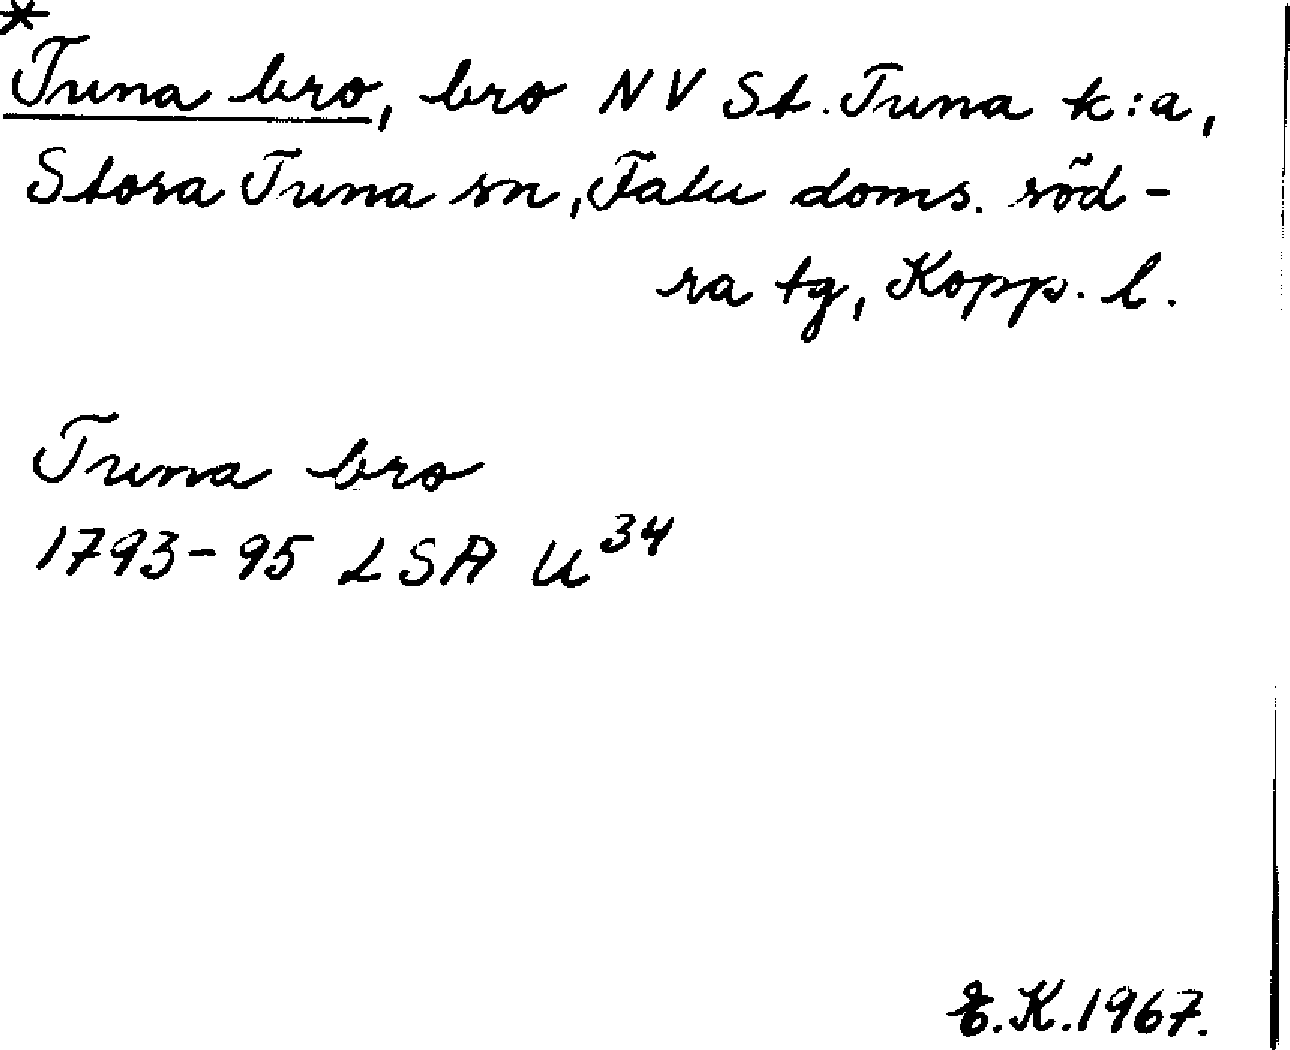 *
Tuna bro, bro NV St. Tuna k:a,
Stora Tuna sn, Falu doms. söd-
ra tg, Kopp. l.
Tuna bro
1793-95 LSA U³⁴
E.K.1967.